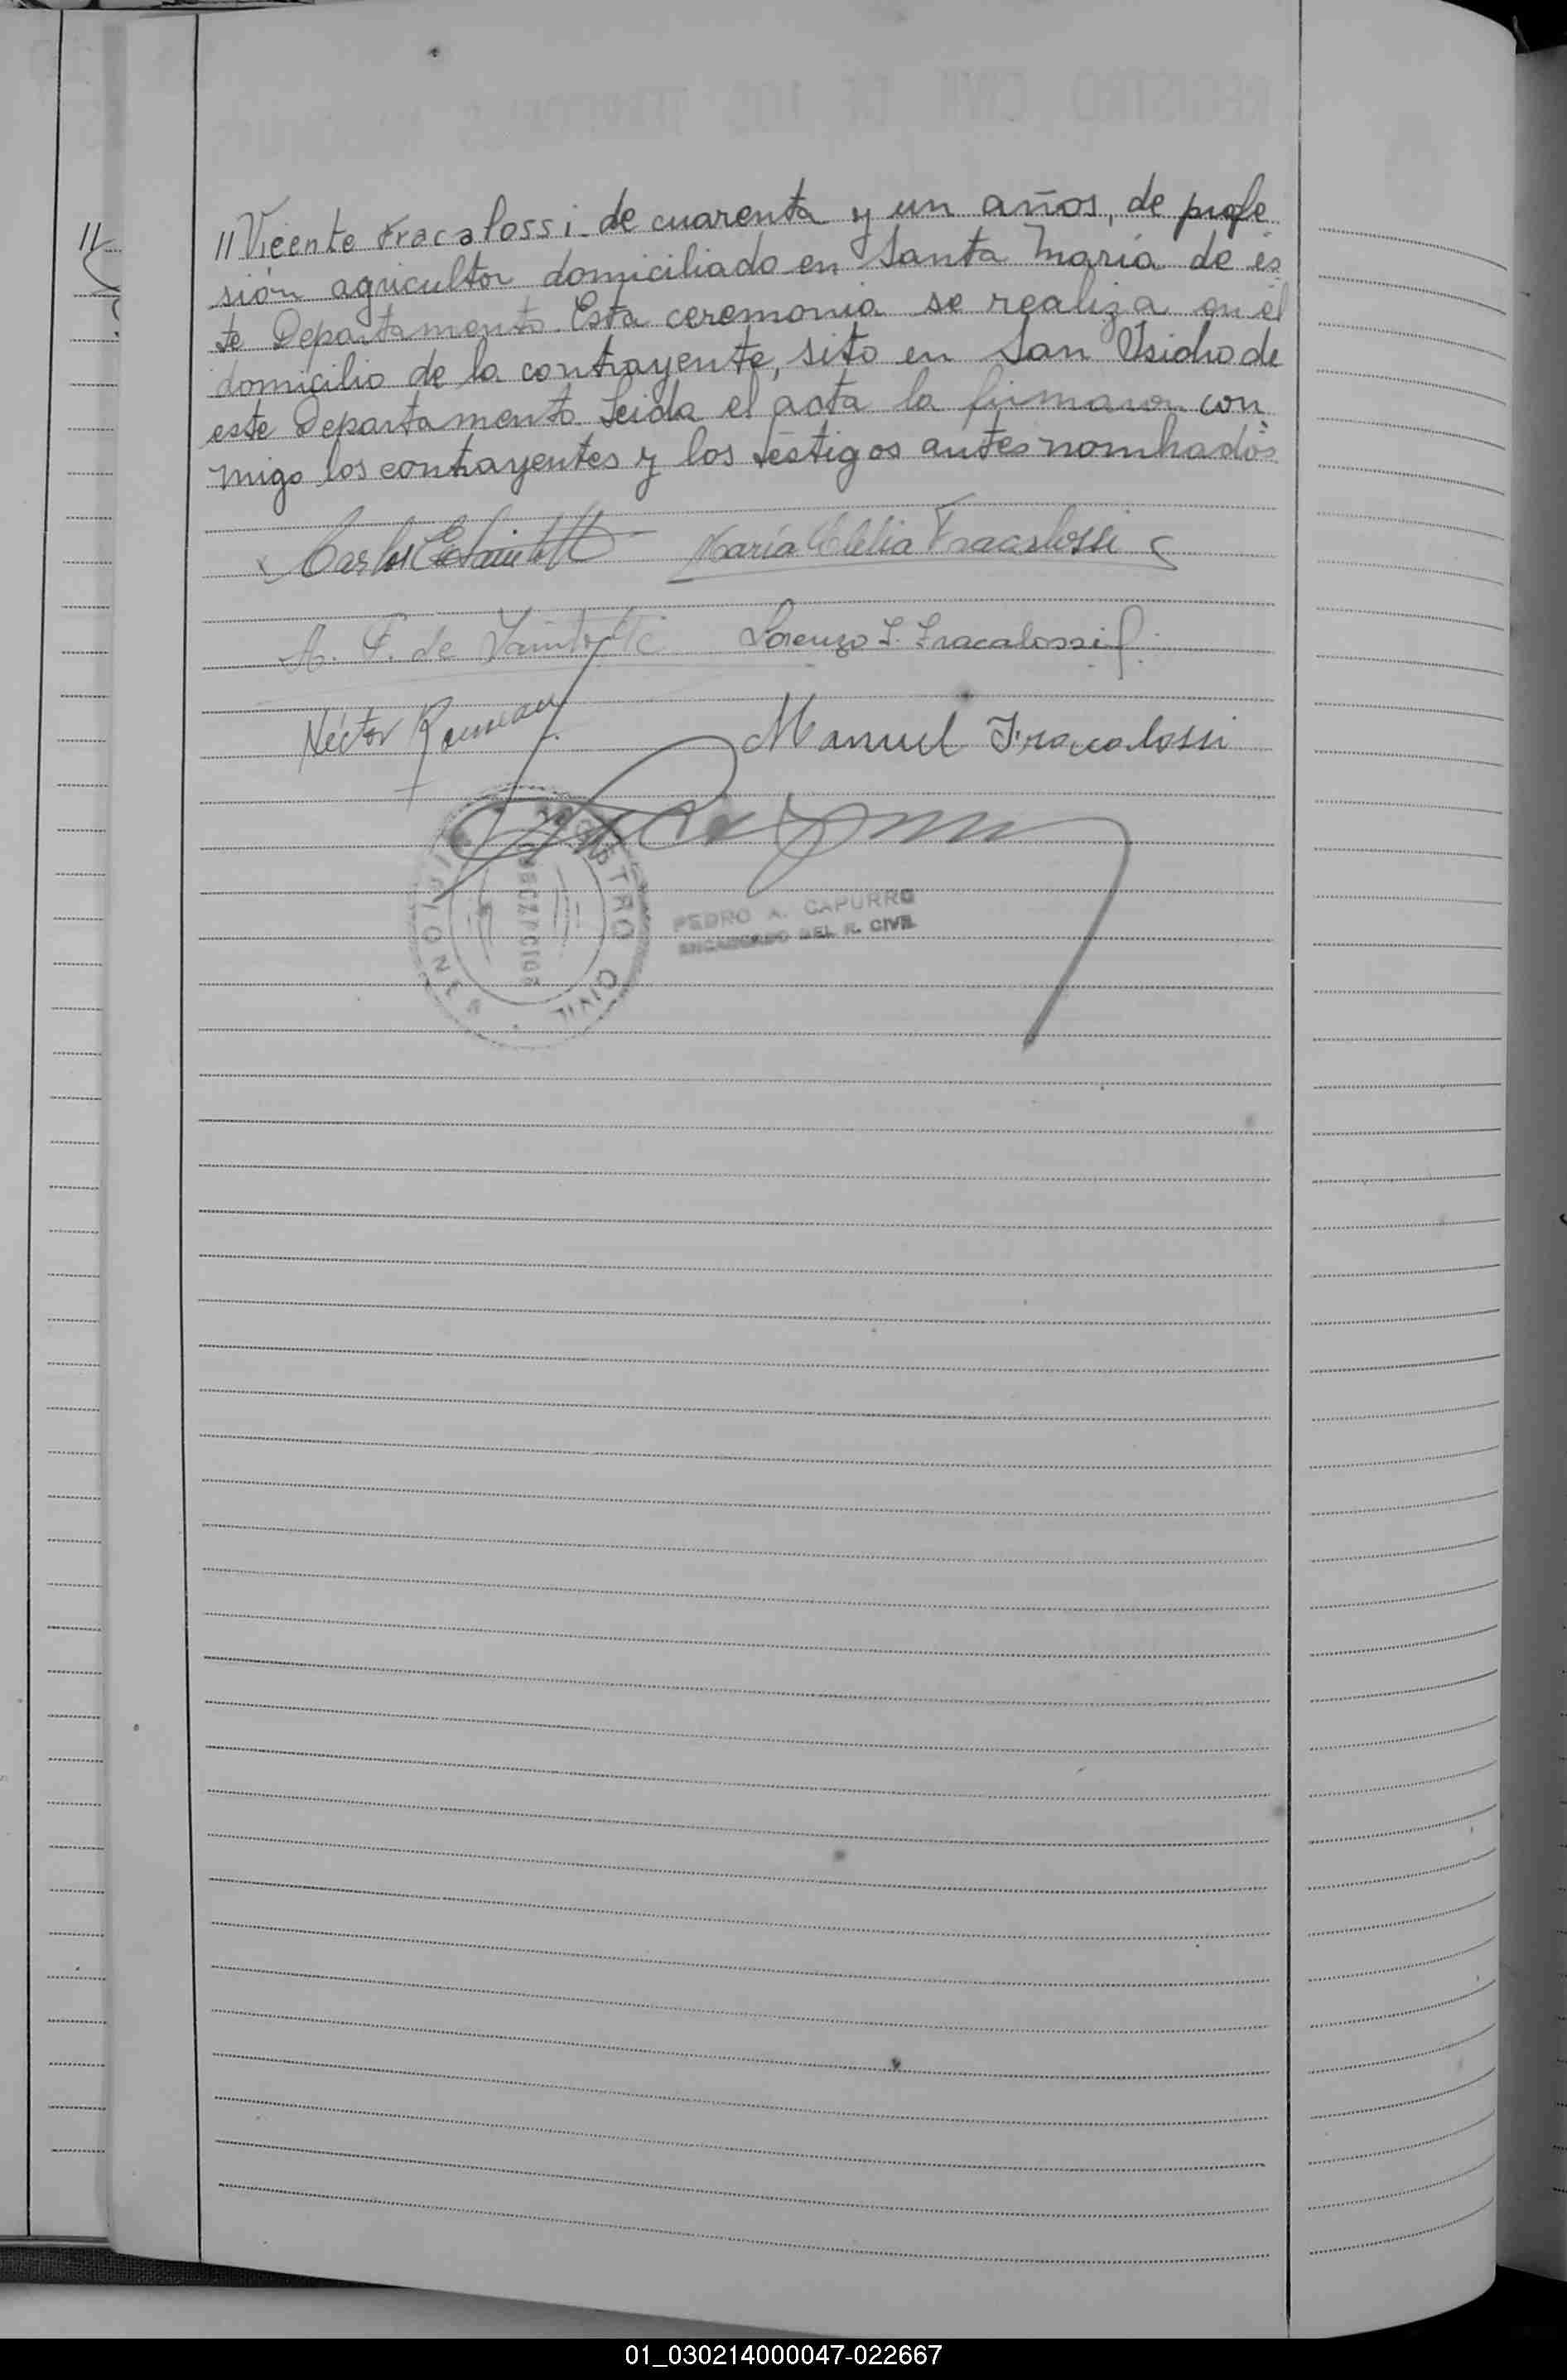 //
// Vicente Fracalossi de cuarenta y un años, de profe
sión agricultor domiciliado en Santa María de es
te Departamento. Esta ceremonia se realiza en el
domicilio de la contrayente, sito en San Isidro de
este Departamento Leida el acta la firmaron con
migo los contrayentes y los testigos antes nombrados
Carlos María Clelia Fracalossi
A. F. de Lorenzo F. Fracalossi
Néctor Manuel Fracalossi
REGISTRO CIVIL
MISIONES
PEDRO A. CAPURRO
ENCARGADO DEL R. CIVIL
01_030214000047-022667